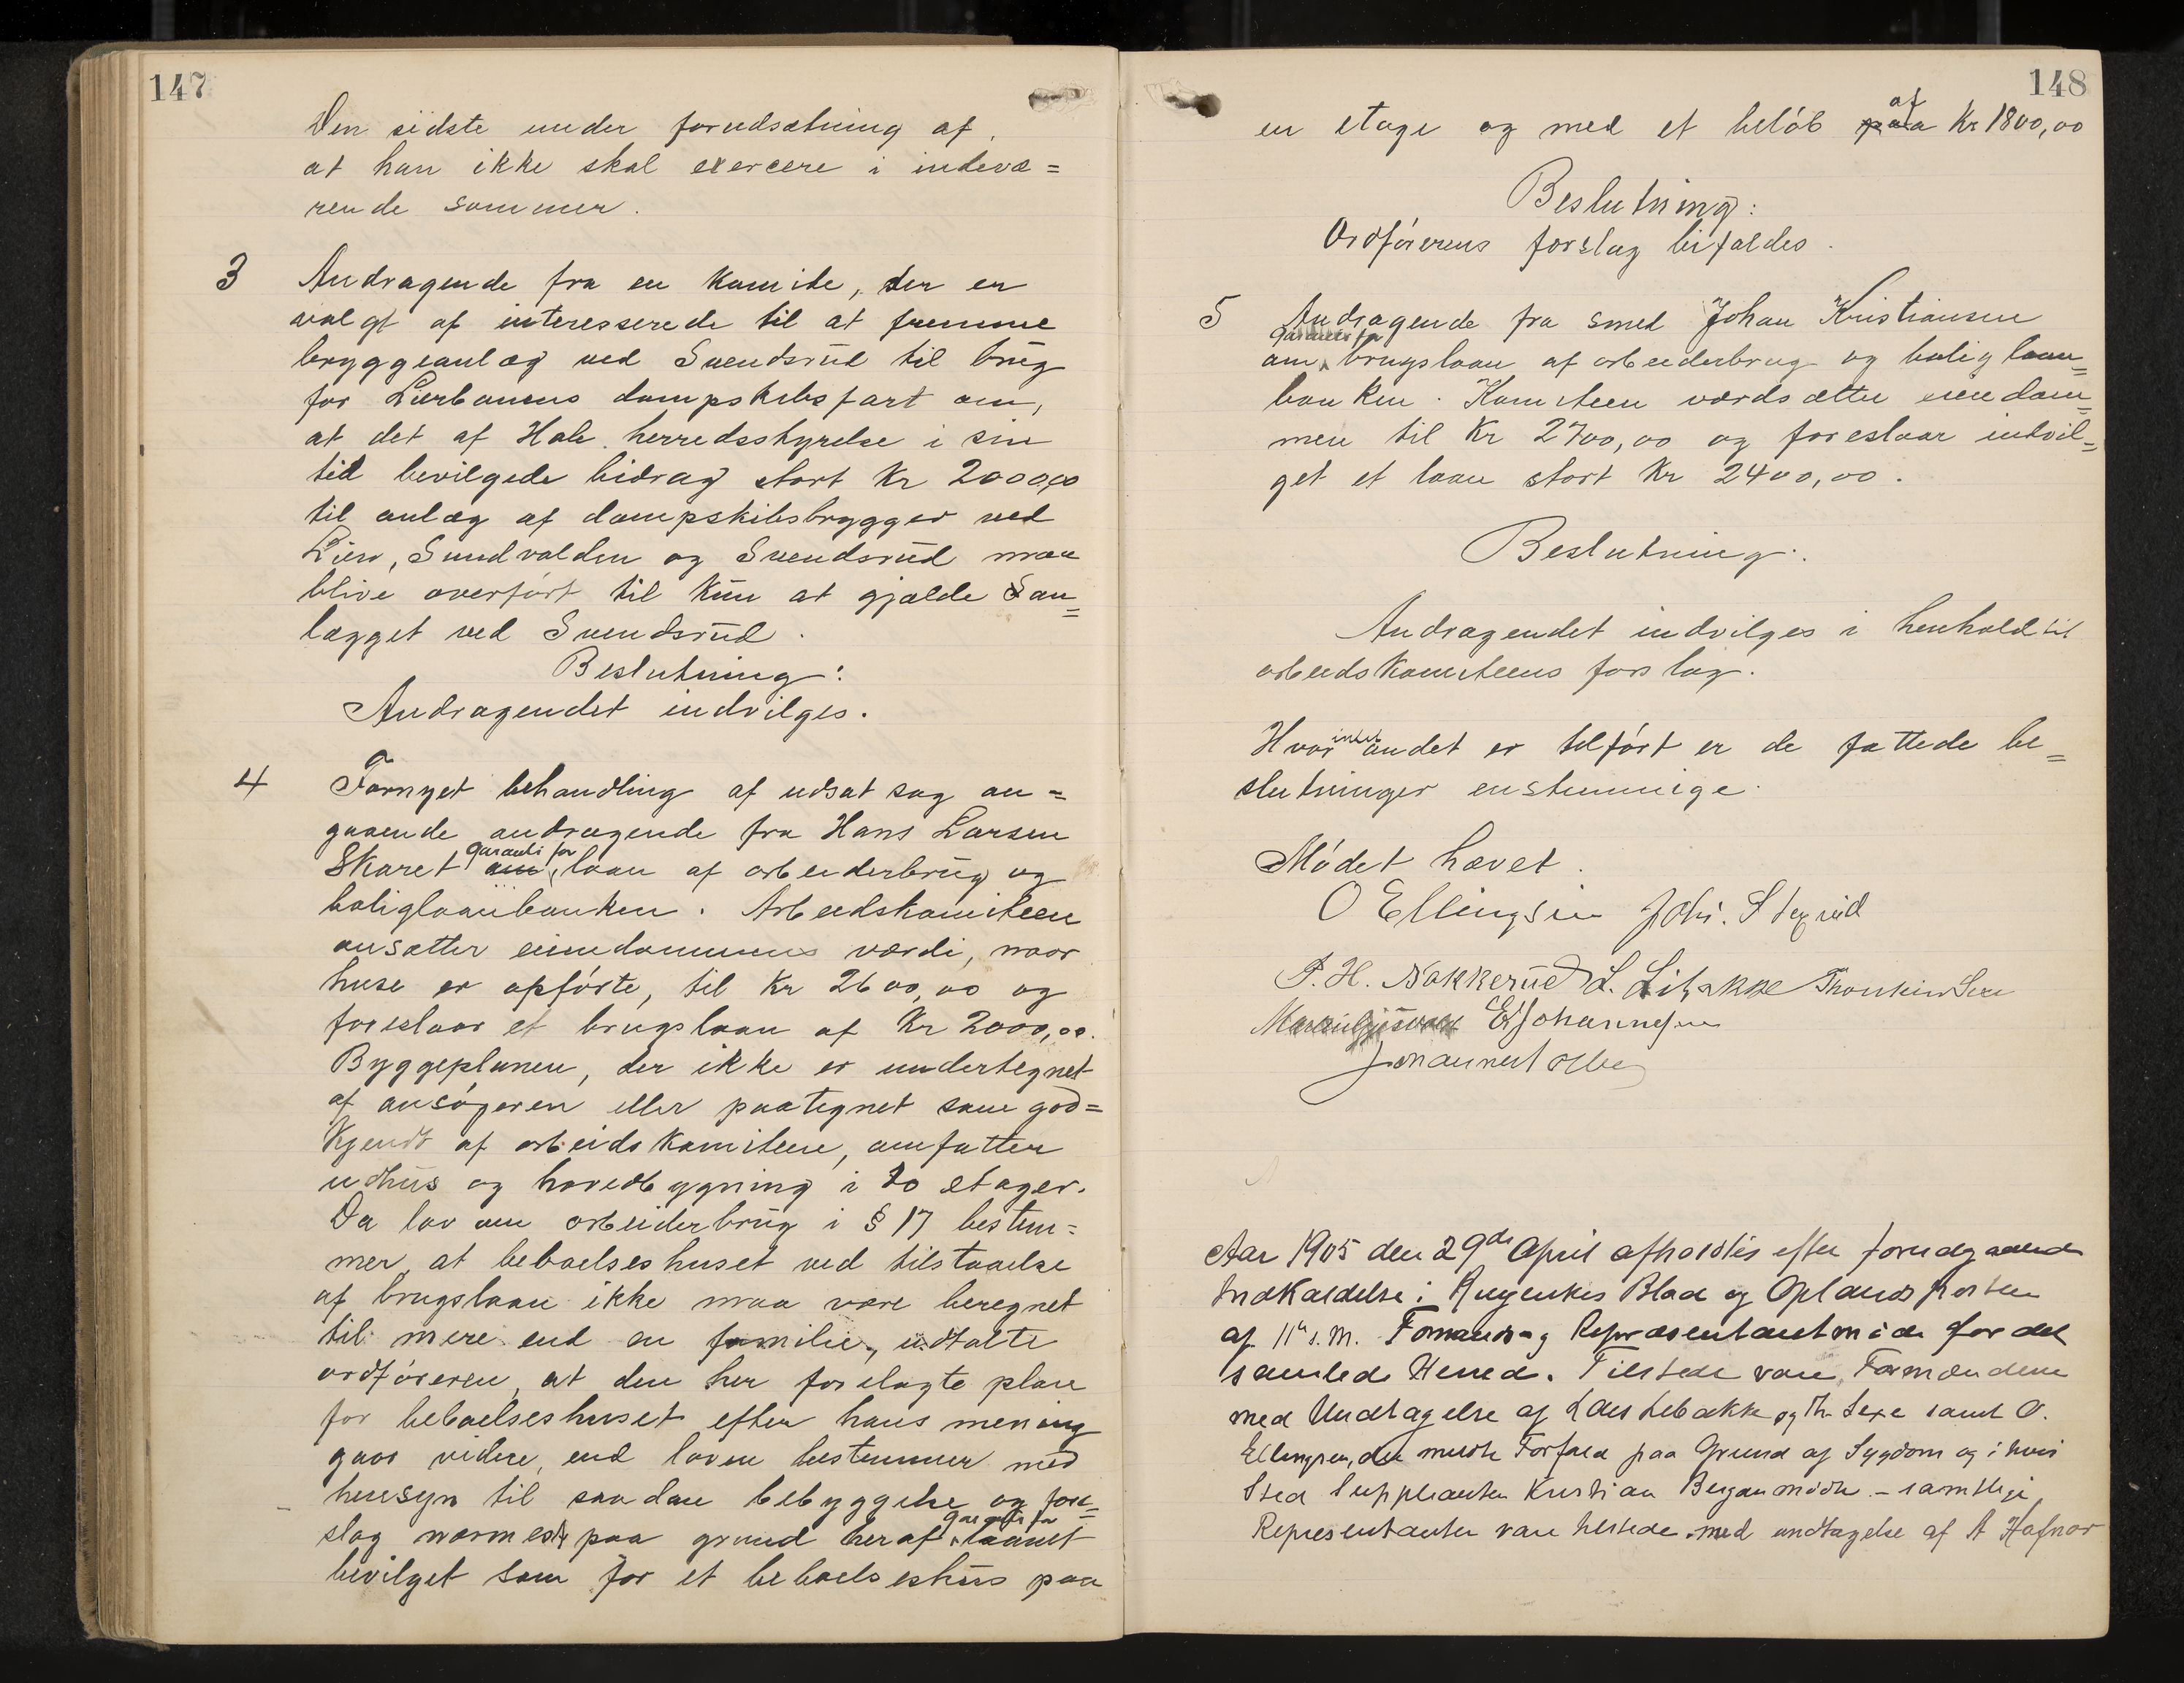 147
Den sidste under forudsætning af,
at han ikke skal exercere i indevæ=
rende sommer.
3 Andragende fra en komite, der er
valgt af interesserede til at fremme
bryggeanlæg ved Svendsrud til brug
for Lierbanens dampskibsfart om,
at det af Hole herredsstyrelse i sin
tid bevilgede bidrag stort Kr 2000,00
til anlæg af dampskibsbrygger ved
Svendsrud maa
blive overført til kun at gjælde an=
lægget ved Svendsrud.
Beslutning:
Andragendet indvilges.
4 Fornyet behandling af udsat sag an=
gaaende andragende fra Hans Larsen
garanti for
Skaret om laan af arbeiderbrug og
boliglaanbanken. Arbeidskomiteen
ansætter eiendommens værdi, naar
huse er opførte, til Kr 2600,00 og
foreslaar et brugslaan af Kr 2000,00.
Byggeplanen, der ikke er undertegnet
af ansøgeren eller paategnet som god=
kjendt af arbeidskomiteen, omfatter
udhus og hovedbygning i to etager.
Da lov om arbeiderbrug i § 17 bestem=
mer, at beboelseshuset ved tilstaaelse
af brugslaan ikke maa være beregnet
til mere end en familie, udtalte
ordføreren, at den her forelagte plan
for beboelseshuset efter hans mening
gaar videre, end loven bestemmer med
hensyn til saadan bebyggelse og fore=
garanti for
slog nærmest paa grund heraf laanet
bevilget som for et beboelseshus paa
148
af
en etage og med et beløb paa Kr 1800,00
Beslutning:
Ordførerens forslag bifaldes.
5 Andragende fra smed Johan Kristiansen
garanti for
om brugslaan af arbeiderbrug og boliglaan=
banken. Komiteen værdsætter eiendom=
men til Kr 2700,00 og foreslaar indvil=
get et laan stort Kr 2400,00.
Beslutning:
Andragendet indvilges i henhold til
arbeidskomiteens forslag.
intet
Hvor andet er tilført er de fattede be=
slutninger enstemmige.
Mødet hævet.
O Ellingsen Johs.
P. H. Nakkerud L.
E Johannesen
Aar 1905 den 29de April afholdtes efter forudgaaende
Indkaldelse i Ringerikes Blad og Oplandsposten
af 11te d. M. Formands- og Repræsentantmøde for det
samlede Herred. Tilstede vare Formændene
med Undtagelse af Lars Libakke og Th. Sexe samt O.
Ellingsen, der meldte Forfald paa Grund af Sygdom og i hvis
Sted Suppleanten Kristian Bergan mødte. - samtlige
Repræsentanter vare tilstede med undtagelse af A Hafnor